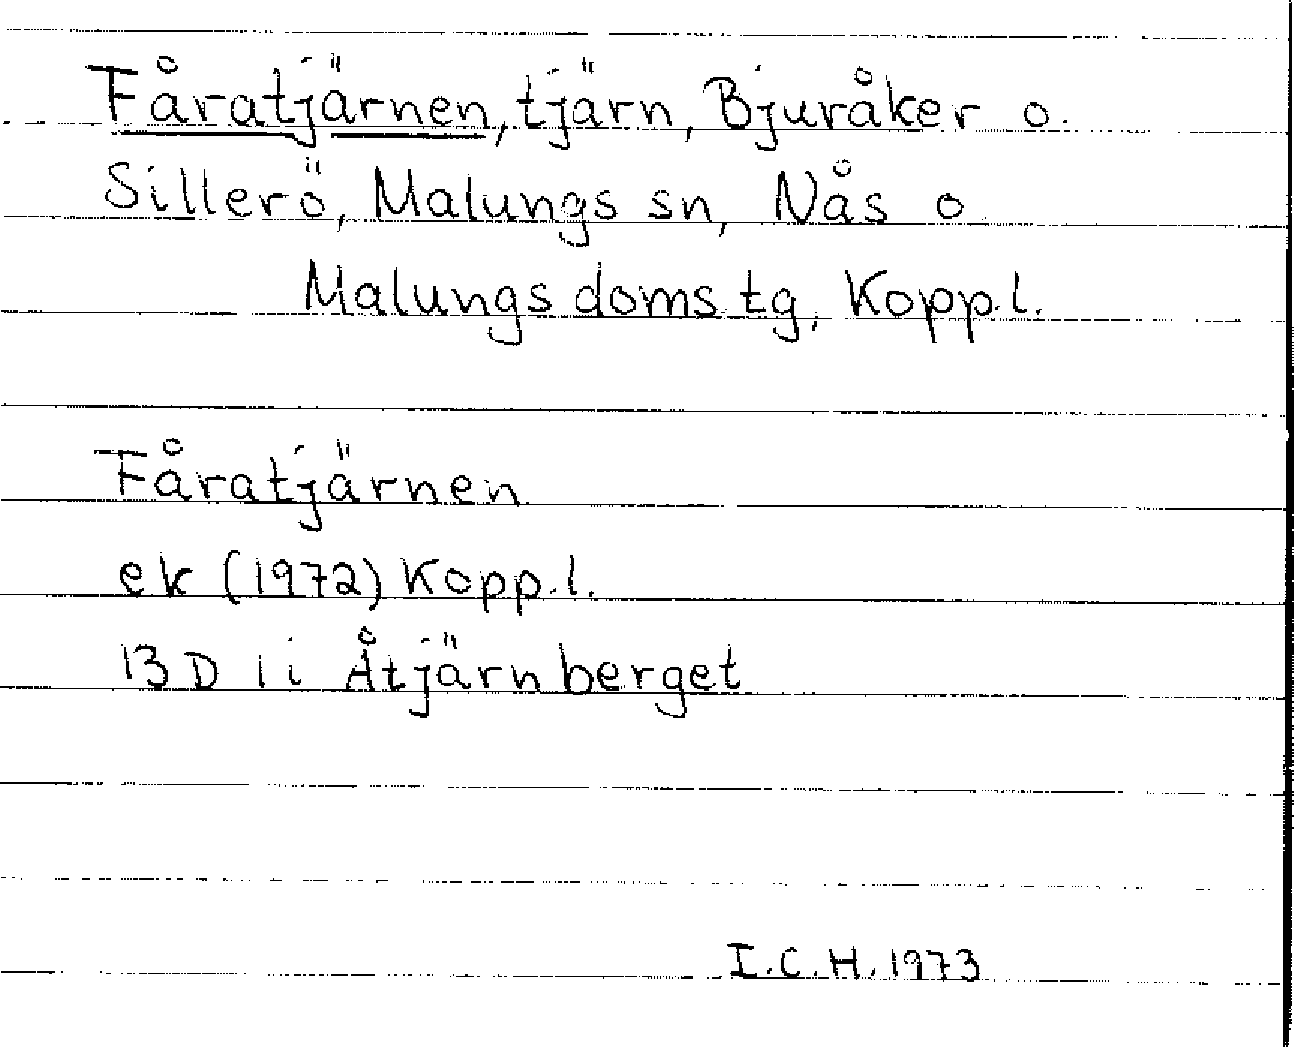 Fåratjärnen, tjärn, Bjuråker o.
Sillerö, Malungs sn, Nås o
Malungs doms.tg, Kopp.l.
Fåratjärnen
ek (1972) Kopp.l.
13 D 1 i Åtjärnberget
I.C.H. 1973